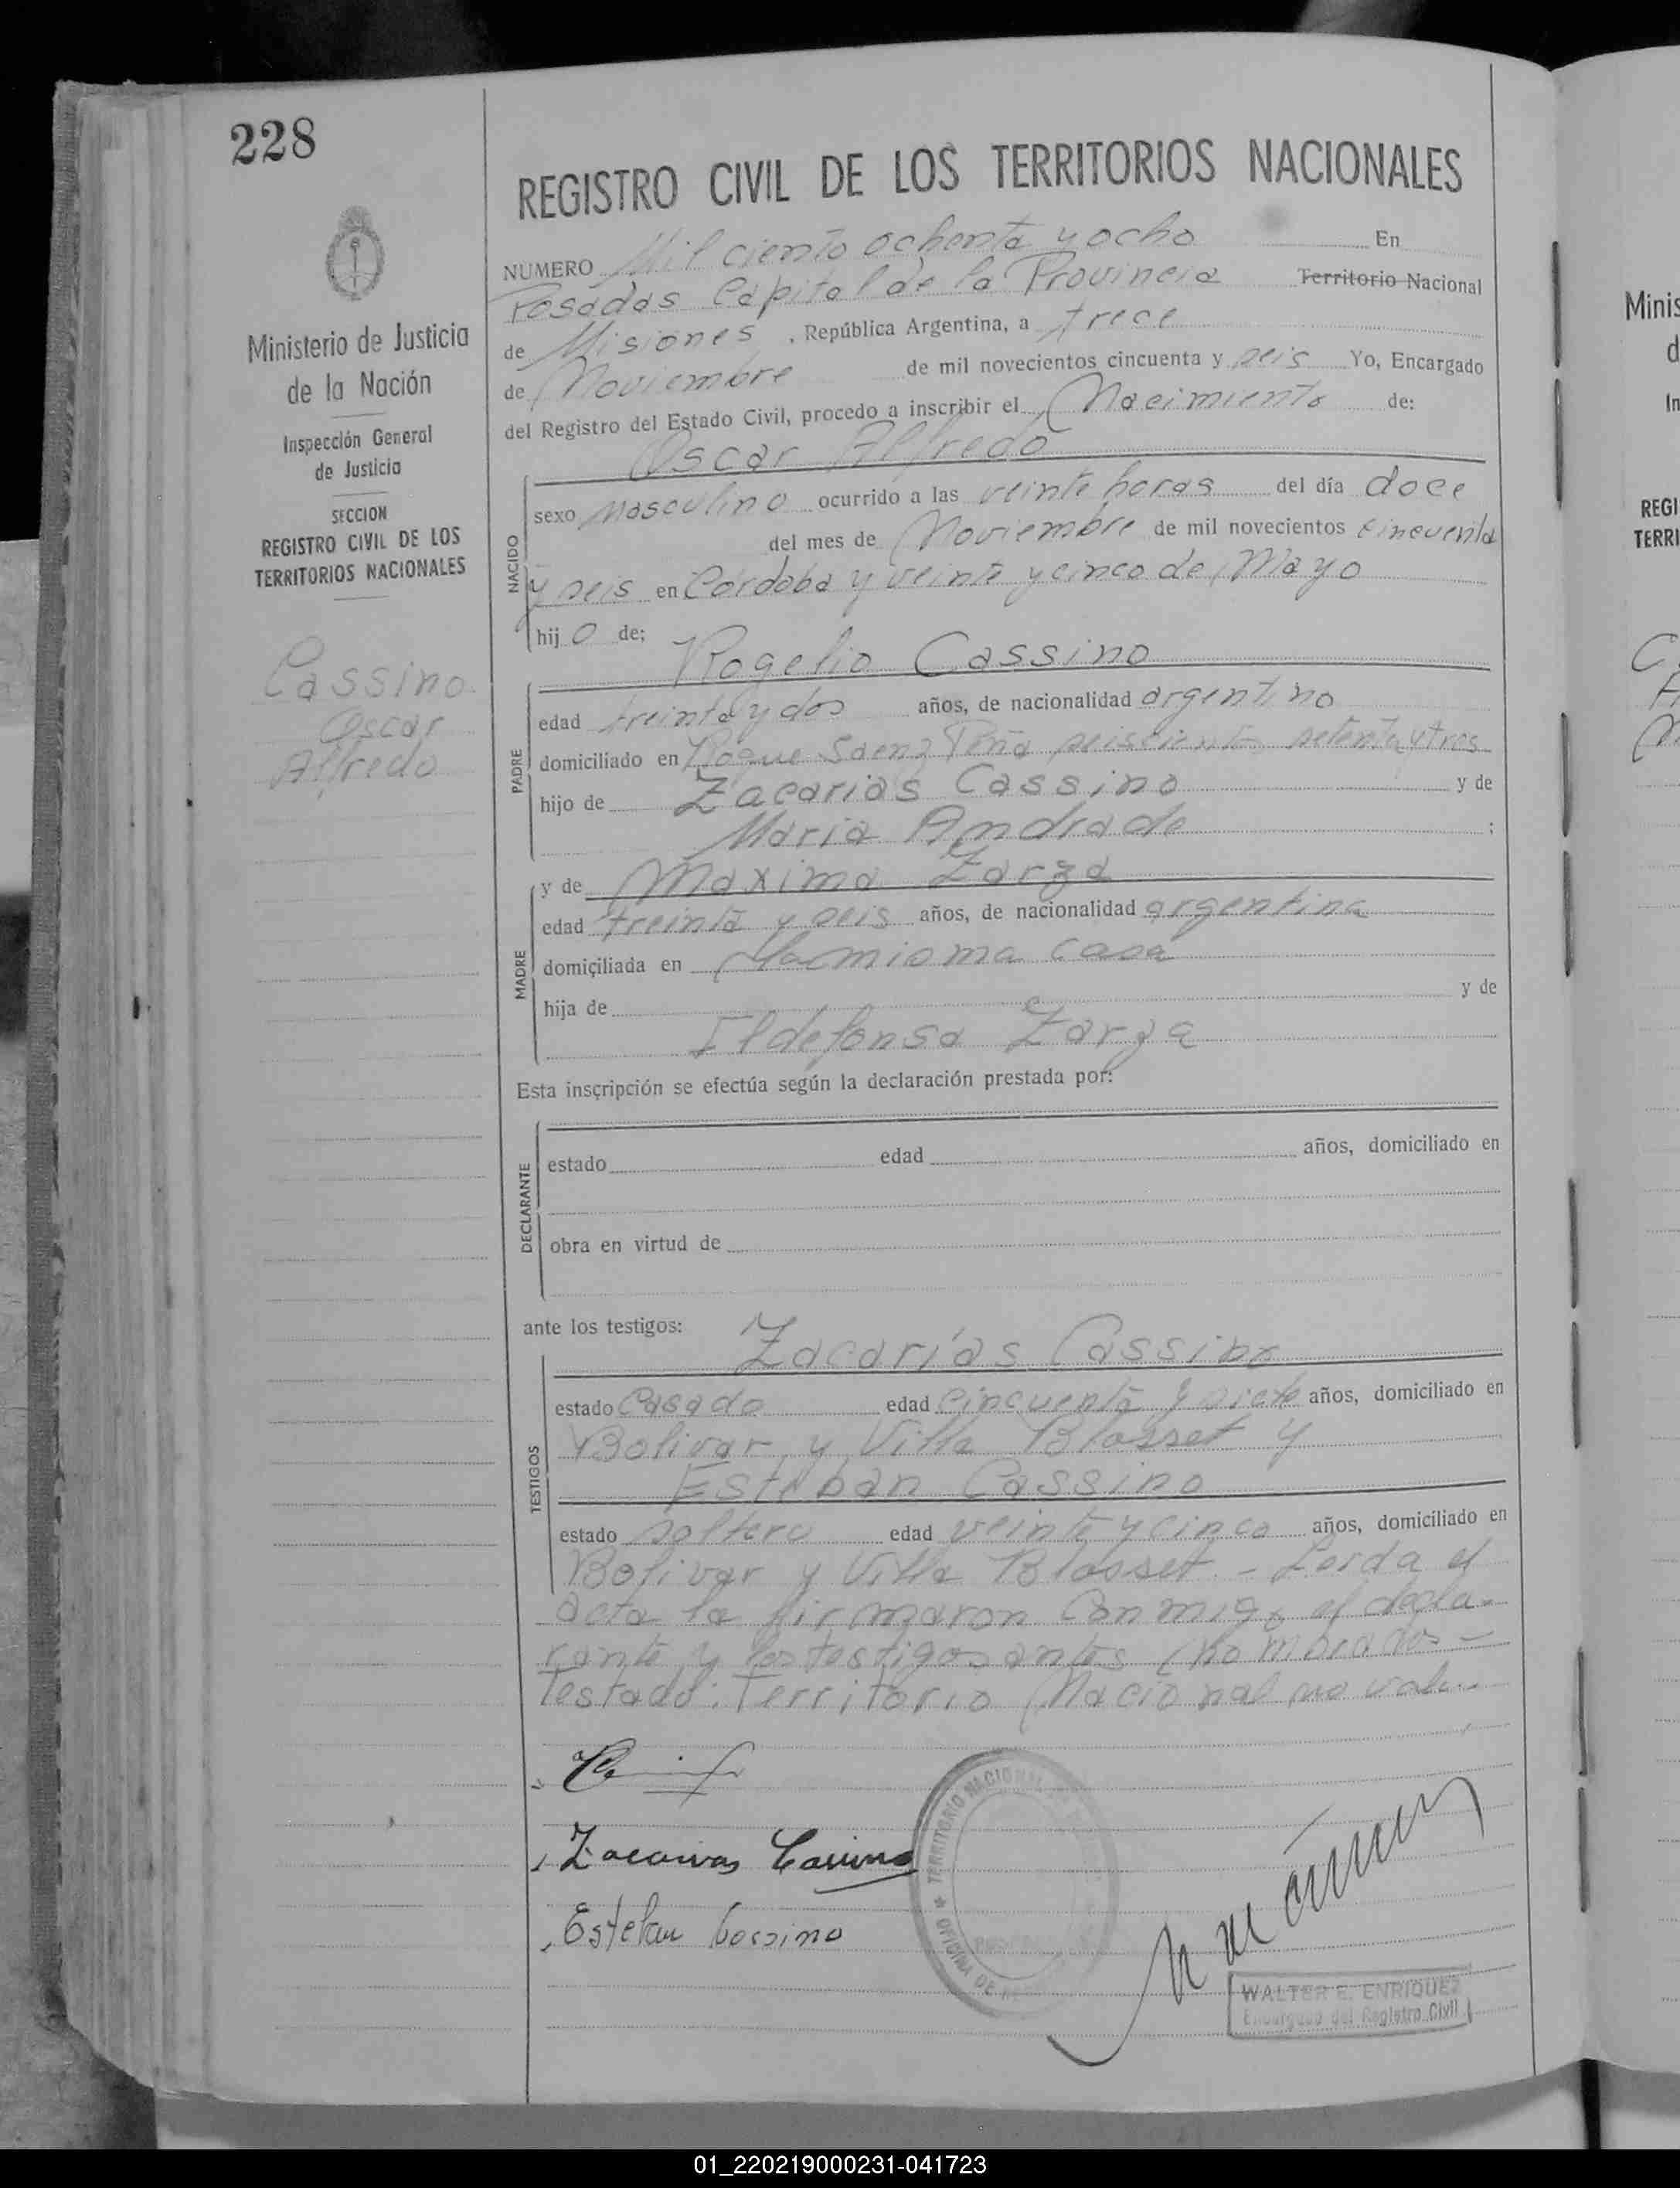 228
Ministerio de Justicia
de la Nación
Inspección General
de Justicia
SECCION
REGISTRO CIVIL DE LOS
TERRITORIOS NACIONALES
Cassino
Oscar
Alfredo
REGISTRO CIVIL DE LOS TERRITORIOS NACIONALES
NUMERO Mil ciento ochenta y ocho En
Posadas Capital de la Provincia Territorio Nacional
de Misiones , República Argentina, a trece
de Noviembre de mil novecientos cincuenta y seis Yo, Encargado
del Registro del Estado Civil, procedo a inscribir el Nacimiento de:
Oscar Alfredo
NACIDO
sexo masculino ocurrido a las veinte horas del día doce
del mes de Noviembre de mil novecientos cincuenta
y seis en Córdoba y veinte y cinco de Mayo
hij o de;
Rogelio Cassino
PADRE
edad treinta y dos años, de nacionalidad argentino
domiciliado en Roque Saenz Peña seiscientos setenta y tres
hijo de Zacarias Cassino y de
Maria Andrade ;
y de Maxima Zarza
MADRE
edad treinta y seis años, de nacionalidad argentina
domiciliada en la misma casa
hija de y de
Ildefonsa Zarza
Esta inscripción se efectúa según la declaración prestada por:
DECLARANTE
estado edad años, domiciliado en
obra en virtud de
ante los testigos:
Zacarías Cassino
TESTIGOS
estado Casado edad cincuenta y siete años, domiciliado en
Bolivar y Villa Blosset y
Esteban Cassino
estado soltero edad veinte y cinco años, domiciliado en
Bolivar y Villa Blosset - Leida el
acta la firmaron conmigo el decla-
rante y los testigos antes nombrados -
Testado: Territorio Nacional no vale.-
Zacarias Cassino
Esteban Cassino
TERRITORIO NACIONAL
OFICINA DE
WALTER E. ENRIQUEZ
Encargado del Registro Civil
Minis
REGI
TERRI
01_220219000231-041723